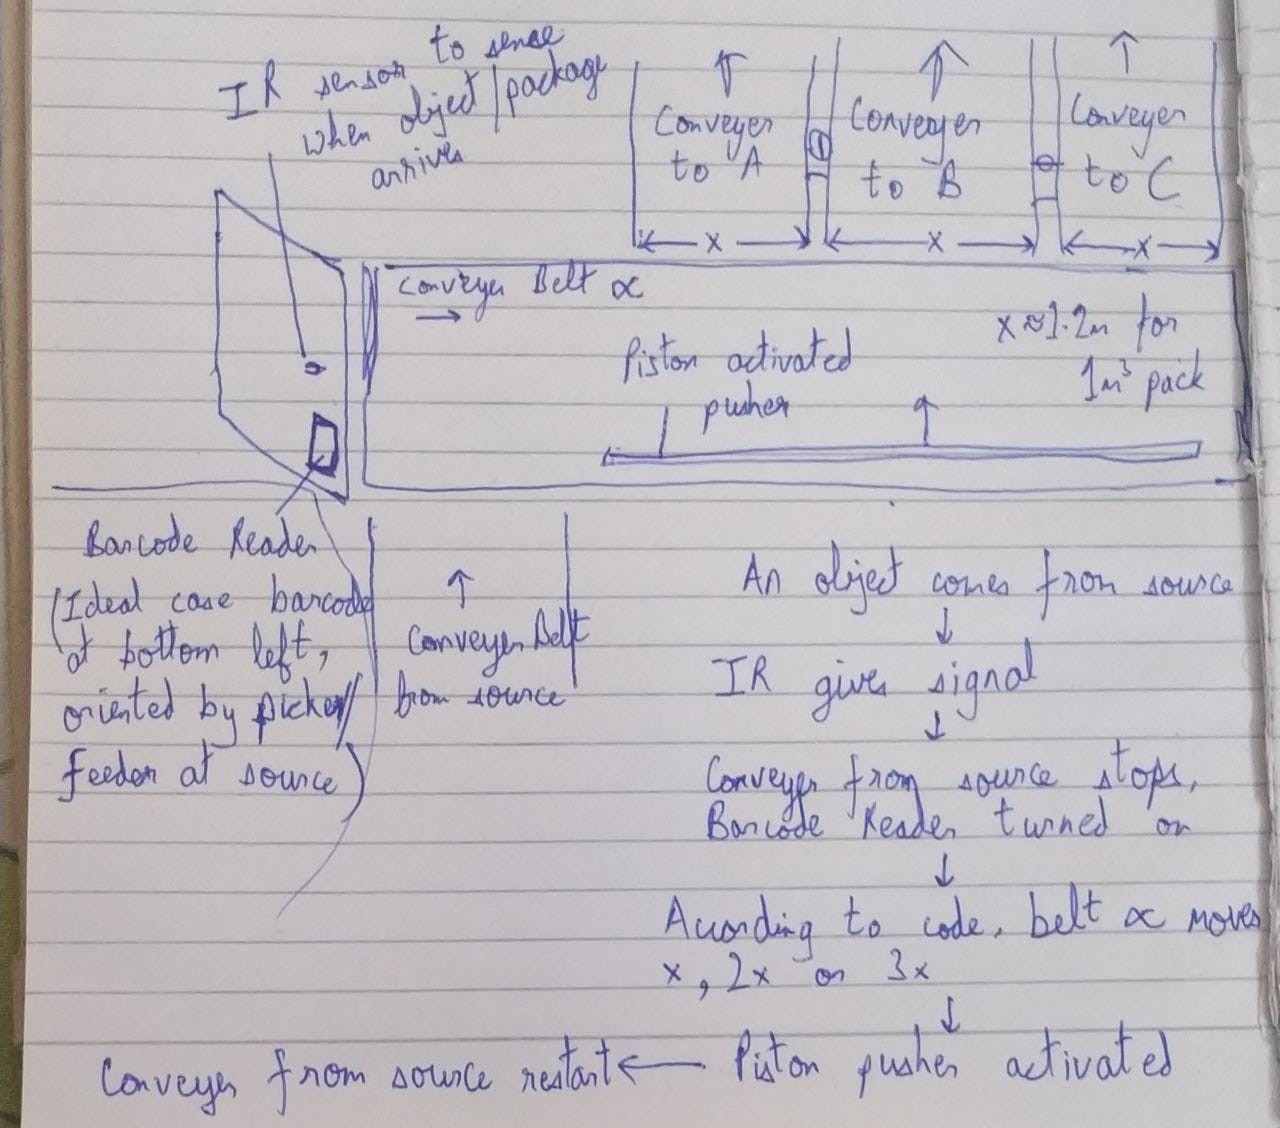 IR sensor to sense
when object/package
arrives
Conveyer
to A
Conveyer
to B
Conveyer
to C
x
x
x
Conveyer Belt α
x ≈ 1.2m for
1m³ pack
Piston activated
pusher
Barcode Reader
(Ideal case barcode
at bottom left,
oriented by picker/
feeder at source)
Conveyer Belt
from source
An object comes from source
↓
IR gives signal
↓
Conveyer from source stops,
Barcode Reader turned on
↓
According to code, belt α moves
x, 2x or 3x
↓
Conveyer from source restart ← Piston pusher activated